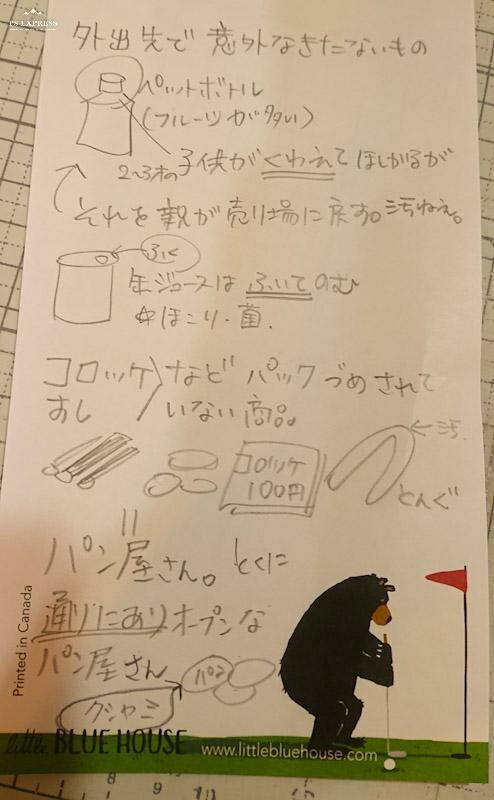 PS EXPRESS
外出先で 意外なきたないもの
ペットボトル
(フルーツが多い)
2~3才の子供がくわえてほしがるが
それを親が売り場に戻す。汚ねえ。
ふく
缶ジュースは ふいてのむ
ほこり・菌.
コロッケ
すし
などパックづめされて
いない商品。
コロッケ
100円
←汚.
とんぐ
パン屋さん。とくに
通りにありオープンな
パン屋さん
パン
クシャミ
Printed in Canada
little BLUE HOUSE
www.littlebluehouse.com
8
9
10